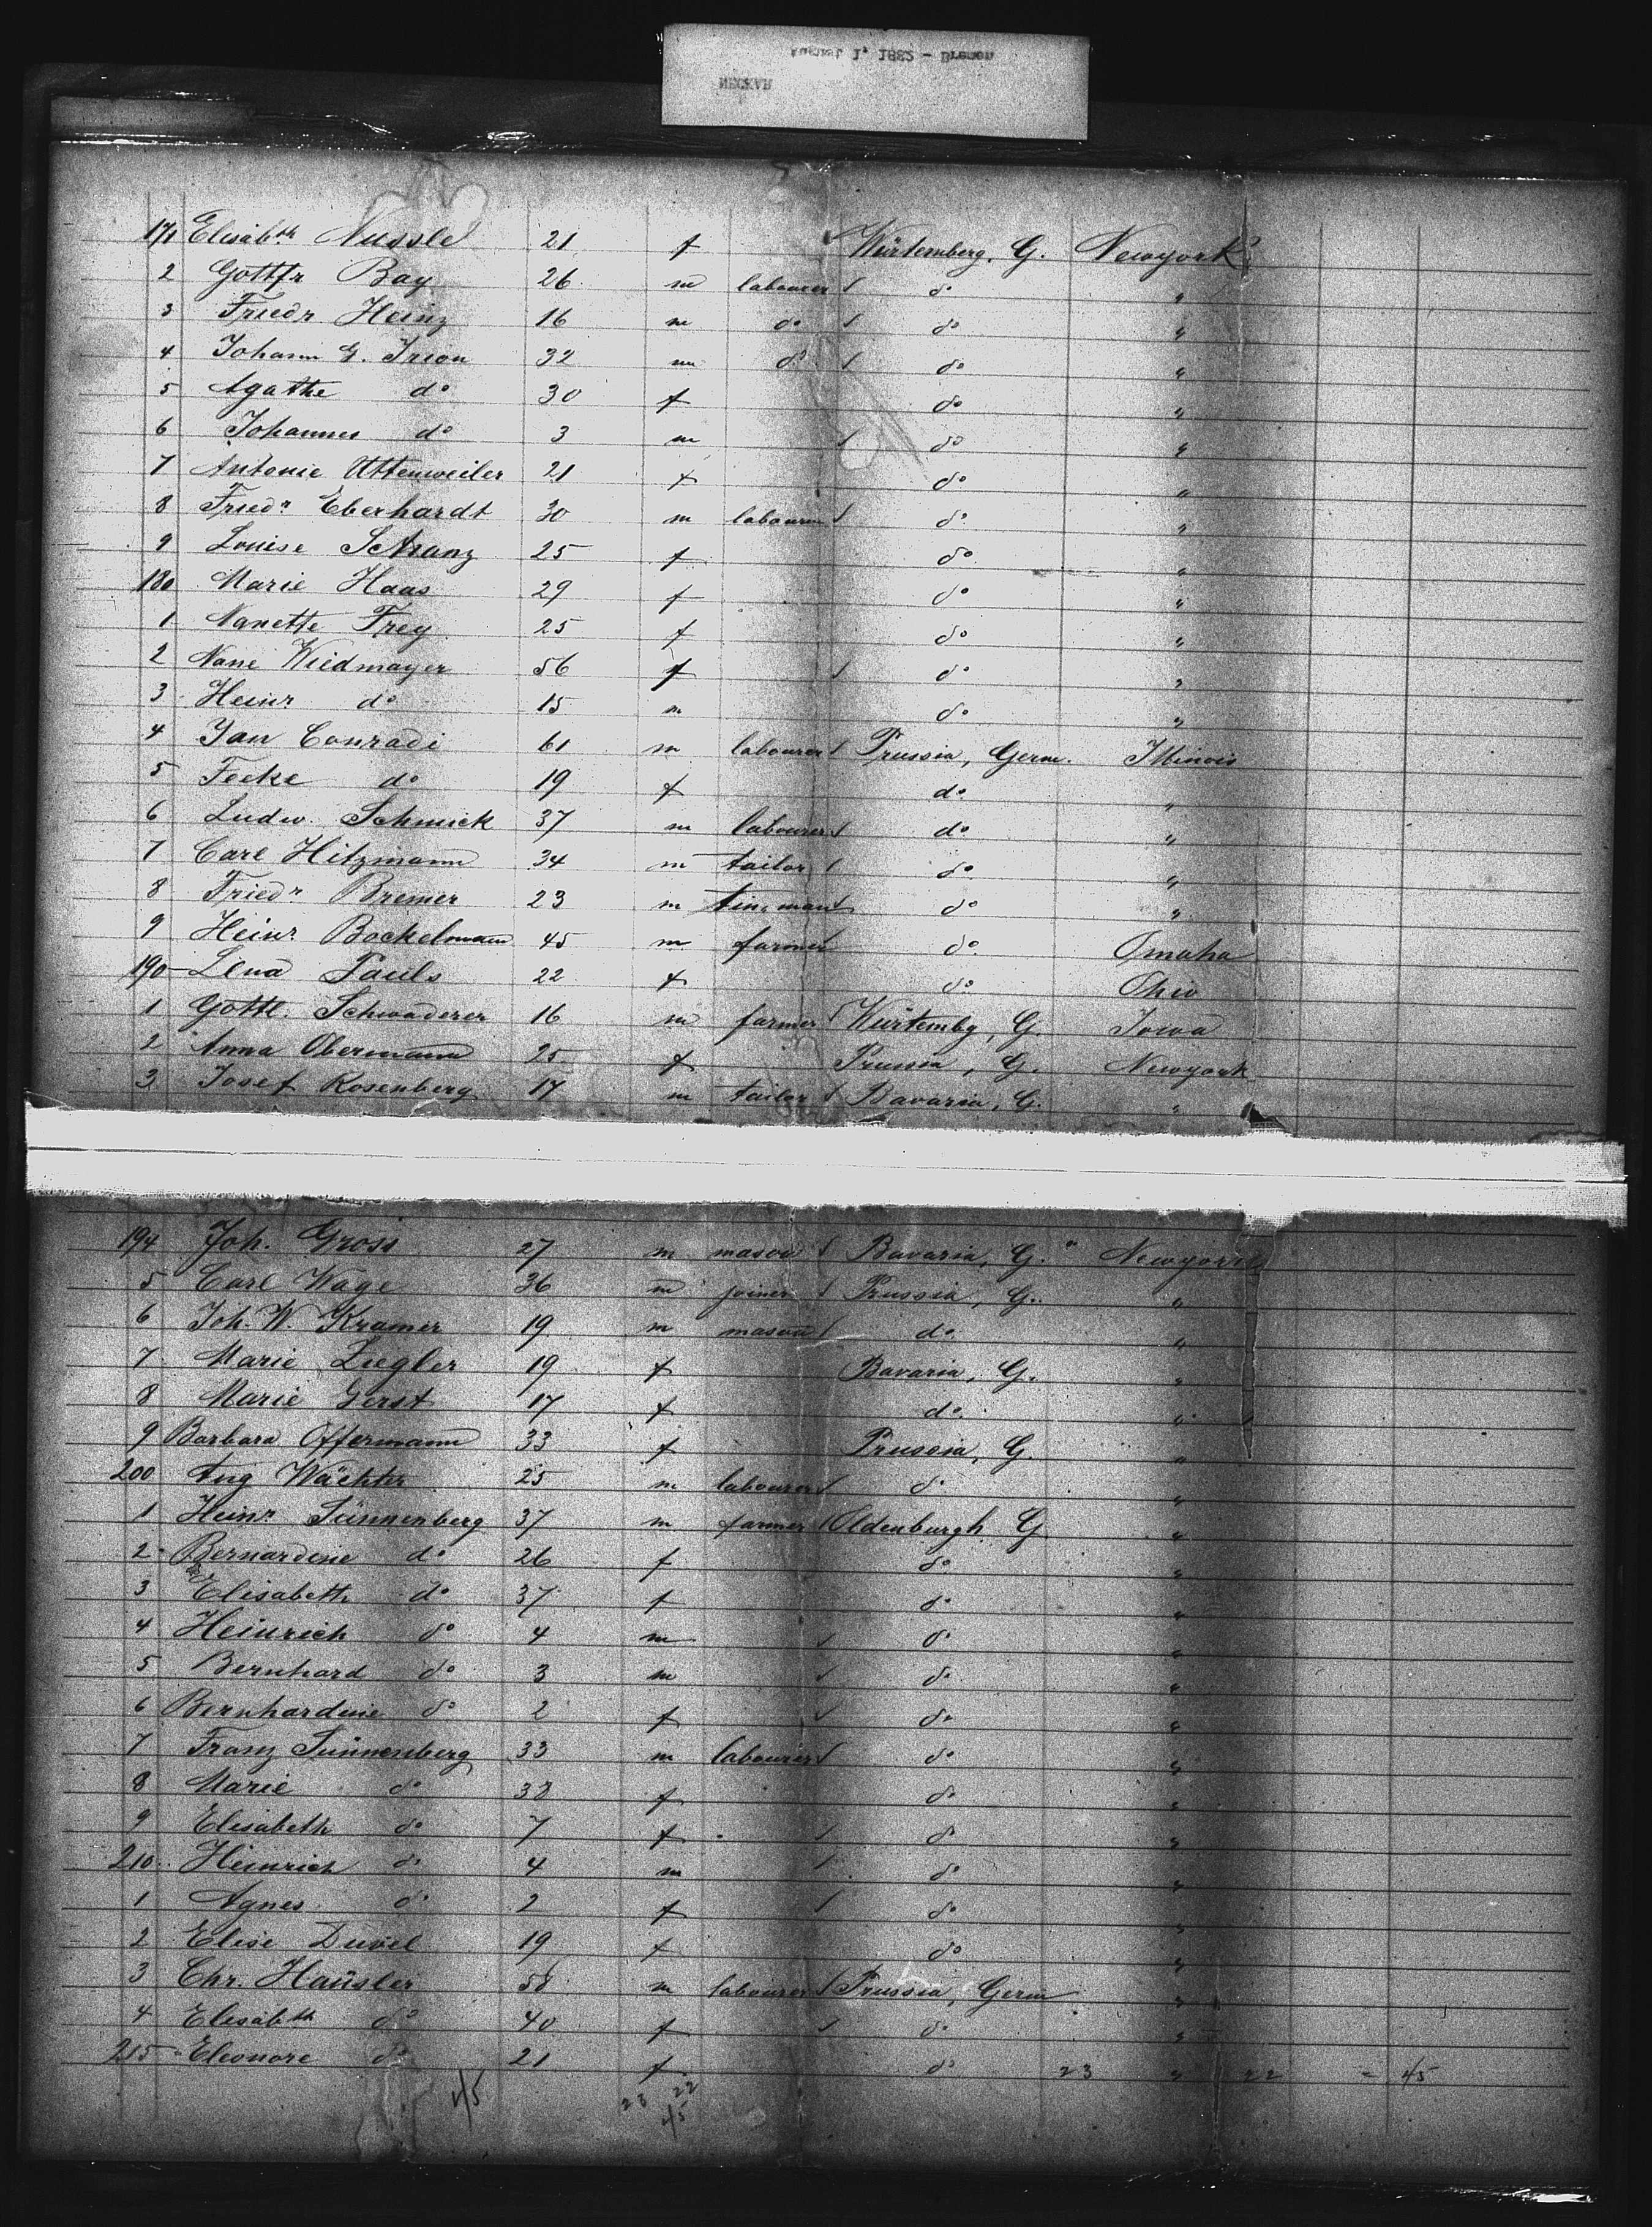 August 1, 1882 - Bremen
NECKAR
171 Elisabth Nussle 21 f Würtemberg, G. Newyork
2 Gottfr Bay 26 m labourer do "
3 Friedr Heinz 16 m do do "
4 Johann G. Irion 32 m do do "
5 Agathe do 30 f do "
6 Johannes do 3 m do "
7 Antonie Uttenweiler 21 f do "
8 Friedr Eberhardt 30 m labourer do "
9 Louise Schanz 25 f do "
180 Marie Haas 29 f do "
1 Nanette Frey 25 f do "
2 Nane Wiedmayer 56 f do "
3 Heinr do 15 m do "
4 Jan Conradi 61 m labourer Prussia, Germ. Illinois
5 Feeke do 19 f do "
6 Ludw. Schmick 37 m labourer do "
7 Carl Hitzmann 34 m tailor do "
8 Friedr Bremer 23 m tin.man do "
9 Heinr Bockelmann 45 m farmer do Omaha
190 Lena Pauls 22 f do Ohio
1 Gottl. Schwaderer 16 m farmer Würtembg, G. Iowa
2 Anna Obermann 25 f Prussia, G. Newyork
3 Josef Rosenberg 17 m tailor Bavaria, G. "
194 Joh. Gross 27 m mason Bavaria, G. " Newyork
5 Carl Wage 36 m joiner Prussia, G. "
6 Joh. W. Kramer 19 m mason do "
7 Marie Ziegler 19 f Bavaria, G. "
8 Marie Gerst 17 f do "
9 Barbara Offermann 33 f Prussia, G. "
200 Aug Wächter 25 m labourer do "
1 Heinr Sünnenberg 37 m farmer Oldenburgh G "
2 Bernardine do 26 f do "
3 Elisabeth do 37 f do "
4 Heinrich do 4 m do "
5 Bernhard do 3 m do "
6 Bernhardine do 2 f do "
7 Franz Sünnenberg 33 m labourer do "
8 Marie do 32 f do "
9 Elisabeth do 7 f do "
210 Heinrich do 4 m do "
1 Agnes do 2 f do "
2 Elise Duvel 19 f do "
3 Chr. Haüsler 58 m labourer Prussia, Germ "
4 Elisabth do 40 f do "
215 Eleonore do 21 f do 23 " 22 = 45
45 23 22
45